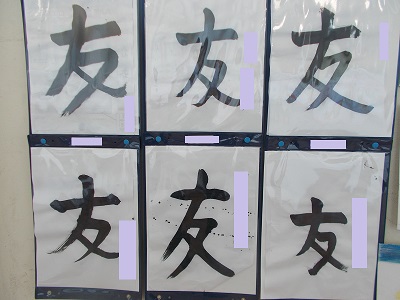 友 友 友
友 友 友